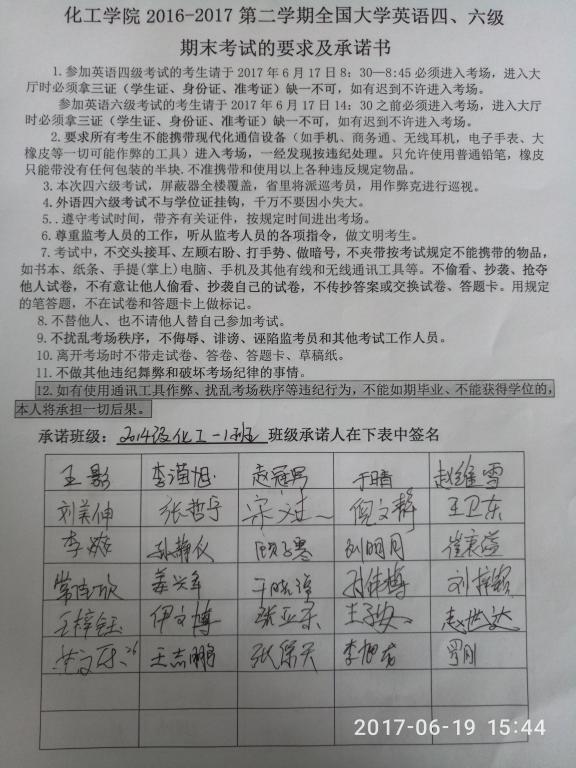 化工学院 2016-2017 第二学期全国大学英语四、六级
期末考试的要求及承诺书
1.参加英语四级考试的考生请于 2017 年 6 月 17 日 8：30—8:45 必须进入考场，进入大
厅时必须拿三证（学生证、身份证、准考证）缺一不可，如有迟到不许进入考场。
参加英语六级考试的考生请于 2017 年 6 月 17 日 14：30 之前必须进入考场，进入大厅
时必须拿三证（学生证、身份证、准考证）缺一不可，如有迟到不许进入考场。
2.要求所有考生不能携带现代化通信设备（如手机、商务通、无线耳机，电子手表、大
橡皮等一切可能作弊的工具）进入考场，一经发现按违纪处理。只允许使用普通铅笔，橡皮
只能带没有任何包装的半块.不准携带和使用以上各种违反规定物品。
3.本次四六级考试，屏蔽器全楼覆盖，省里将派巡考员，用作弊克进行巡视。
4.外语四六级考试不与学位证挂钩，千万不要因小失大。
5..遵守考试时间，带齐有关证件，按规定时间进出考场。
6.尊重监考人员的工作，听从监考人员的各项指令，做文明考生。
7.考试中，不交头接耳、左顾右盼、打手势、做暗号，不夹带按考试规定不能携带的物品，
如书本、纸条、手提(掌上)电脑、手机及其他有线和无线通讯工具等。不偷看、抄袭、抢夺
他人试卷，不有意让他人偷看、抄袭自己的试卷，不传抄答案或交换试卷、答题卡。用规定
的笔答题，不在试卷和答题卡上做标记。
8.不替他人、也不请他人替自己参加考试。
9.不扰乱考场秩序，不侮辱、诽谤、诬陷监考员和其他考试工作人员。
10.离开考场时不带走试卷、答卷、答题卡、草稿纸。
11.不做其他违纪舞弊和破坏考场纪律的事情。
12.如有使用通讯工具作弊、扰乱考场秩序等违纪行为，不能如期毕业、不能获得学位的，
本人将承担一切后果。
承诺班级：2014级化工-1班 班级承诺人在下表中签名
王影 李溢旭 赵冠男 于晴 赵维雪
刘美伸 张哲宁 倪文静 王卫东
孙静仪 刘明月 崔袁萱
姜兴年 于晓泽 孙伟博 刘梓颖
王梓钰 伊文博 张亚东 赵世达
王志鹏 张保天 李旭东 罗刚
2017-06-19 15:44